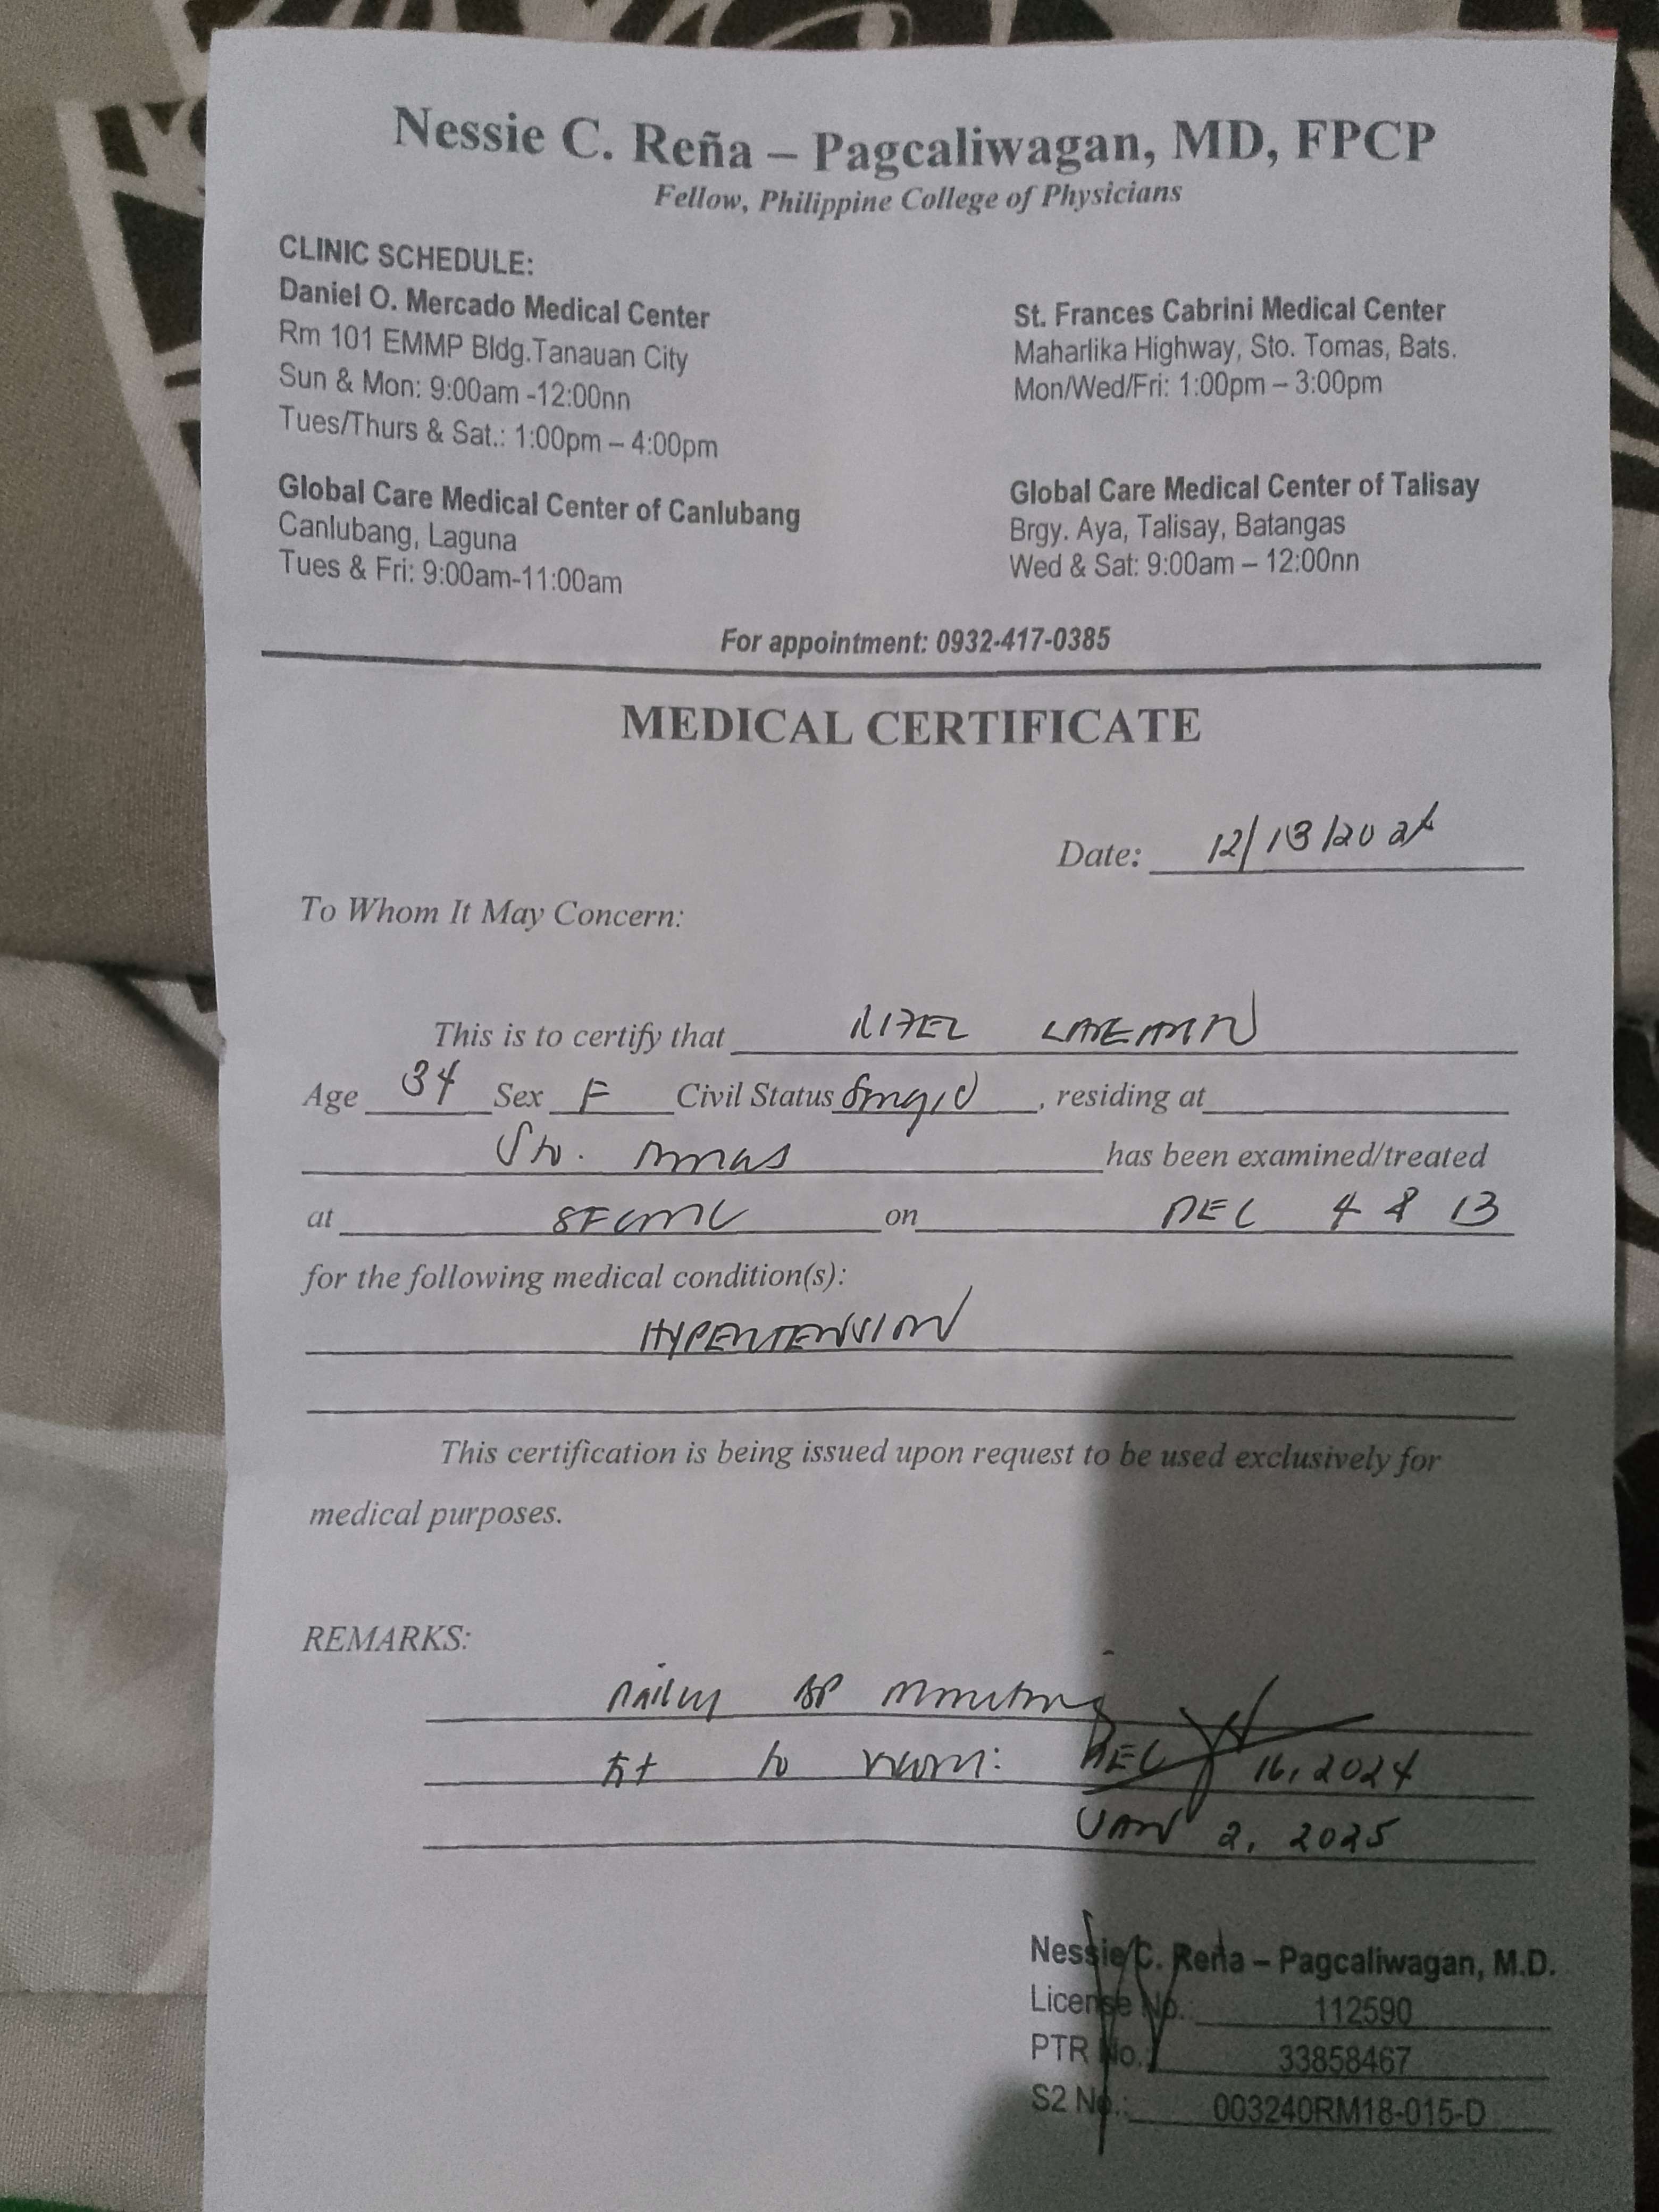 Nessie C. Reña – Pagcaliwagan, MD, FPCP
Fellow, Philippine College of Physicians
CLINIC SCHEDULE:
Daniel O. Mercado Medical Center
Rm 101 EMMP Bldg.Tanauan City
Sun & Mon: 9:00am -12:00nn
Tues/Thurs & Sat.: 1:00pm – 4:00pm
St. Frances Cabrini Medical Center
Maharlika Highway, Sto. Tomas, Bats.
Mon/Wed/Fri: 1:00pm – 3:00pm
Global Care Medical Center of Canlubang
Canlubang, Laguna
Tues & Fri: 9:00am-11:00am
Global Care Medical Center of Talisay
Brgy. Aya, Talisay, Batangas
Wed & Sat: 9:00am – 12:00nn
For appointment: 0932-417-0385
MEDICAL CERTIFICATE
Date: 12/13/2024
To Whom It May Concern:
This is to certify that
Age 34 Sex F Civil Status Single, residing at
Sto. Tomas has been examined/treated
at SFCMC on DEC 4 & 13
for the following medical condition(s):
HYPERTENSION
This certification is being issued upon request to be used exclusively for
medical purposes.
REMARKS:
Daily BP monitoring
Fit to work: DEC 16, 2024
JAN 2, 2025
Nessie C. Reña – Pagcaliwagan, M.D.
License No.: 112590
PTR No.: 33858467
S2 No.: 003240RM18-015-D